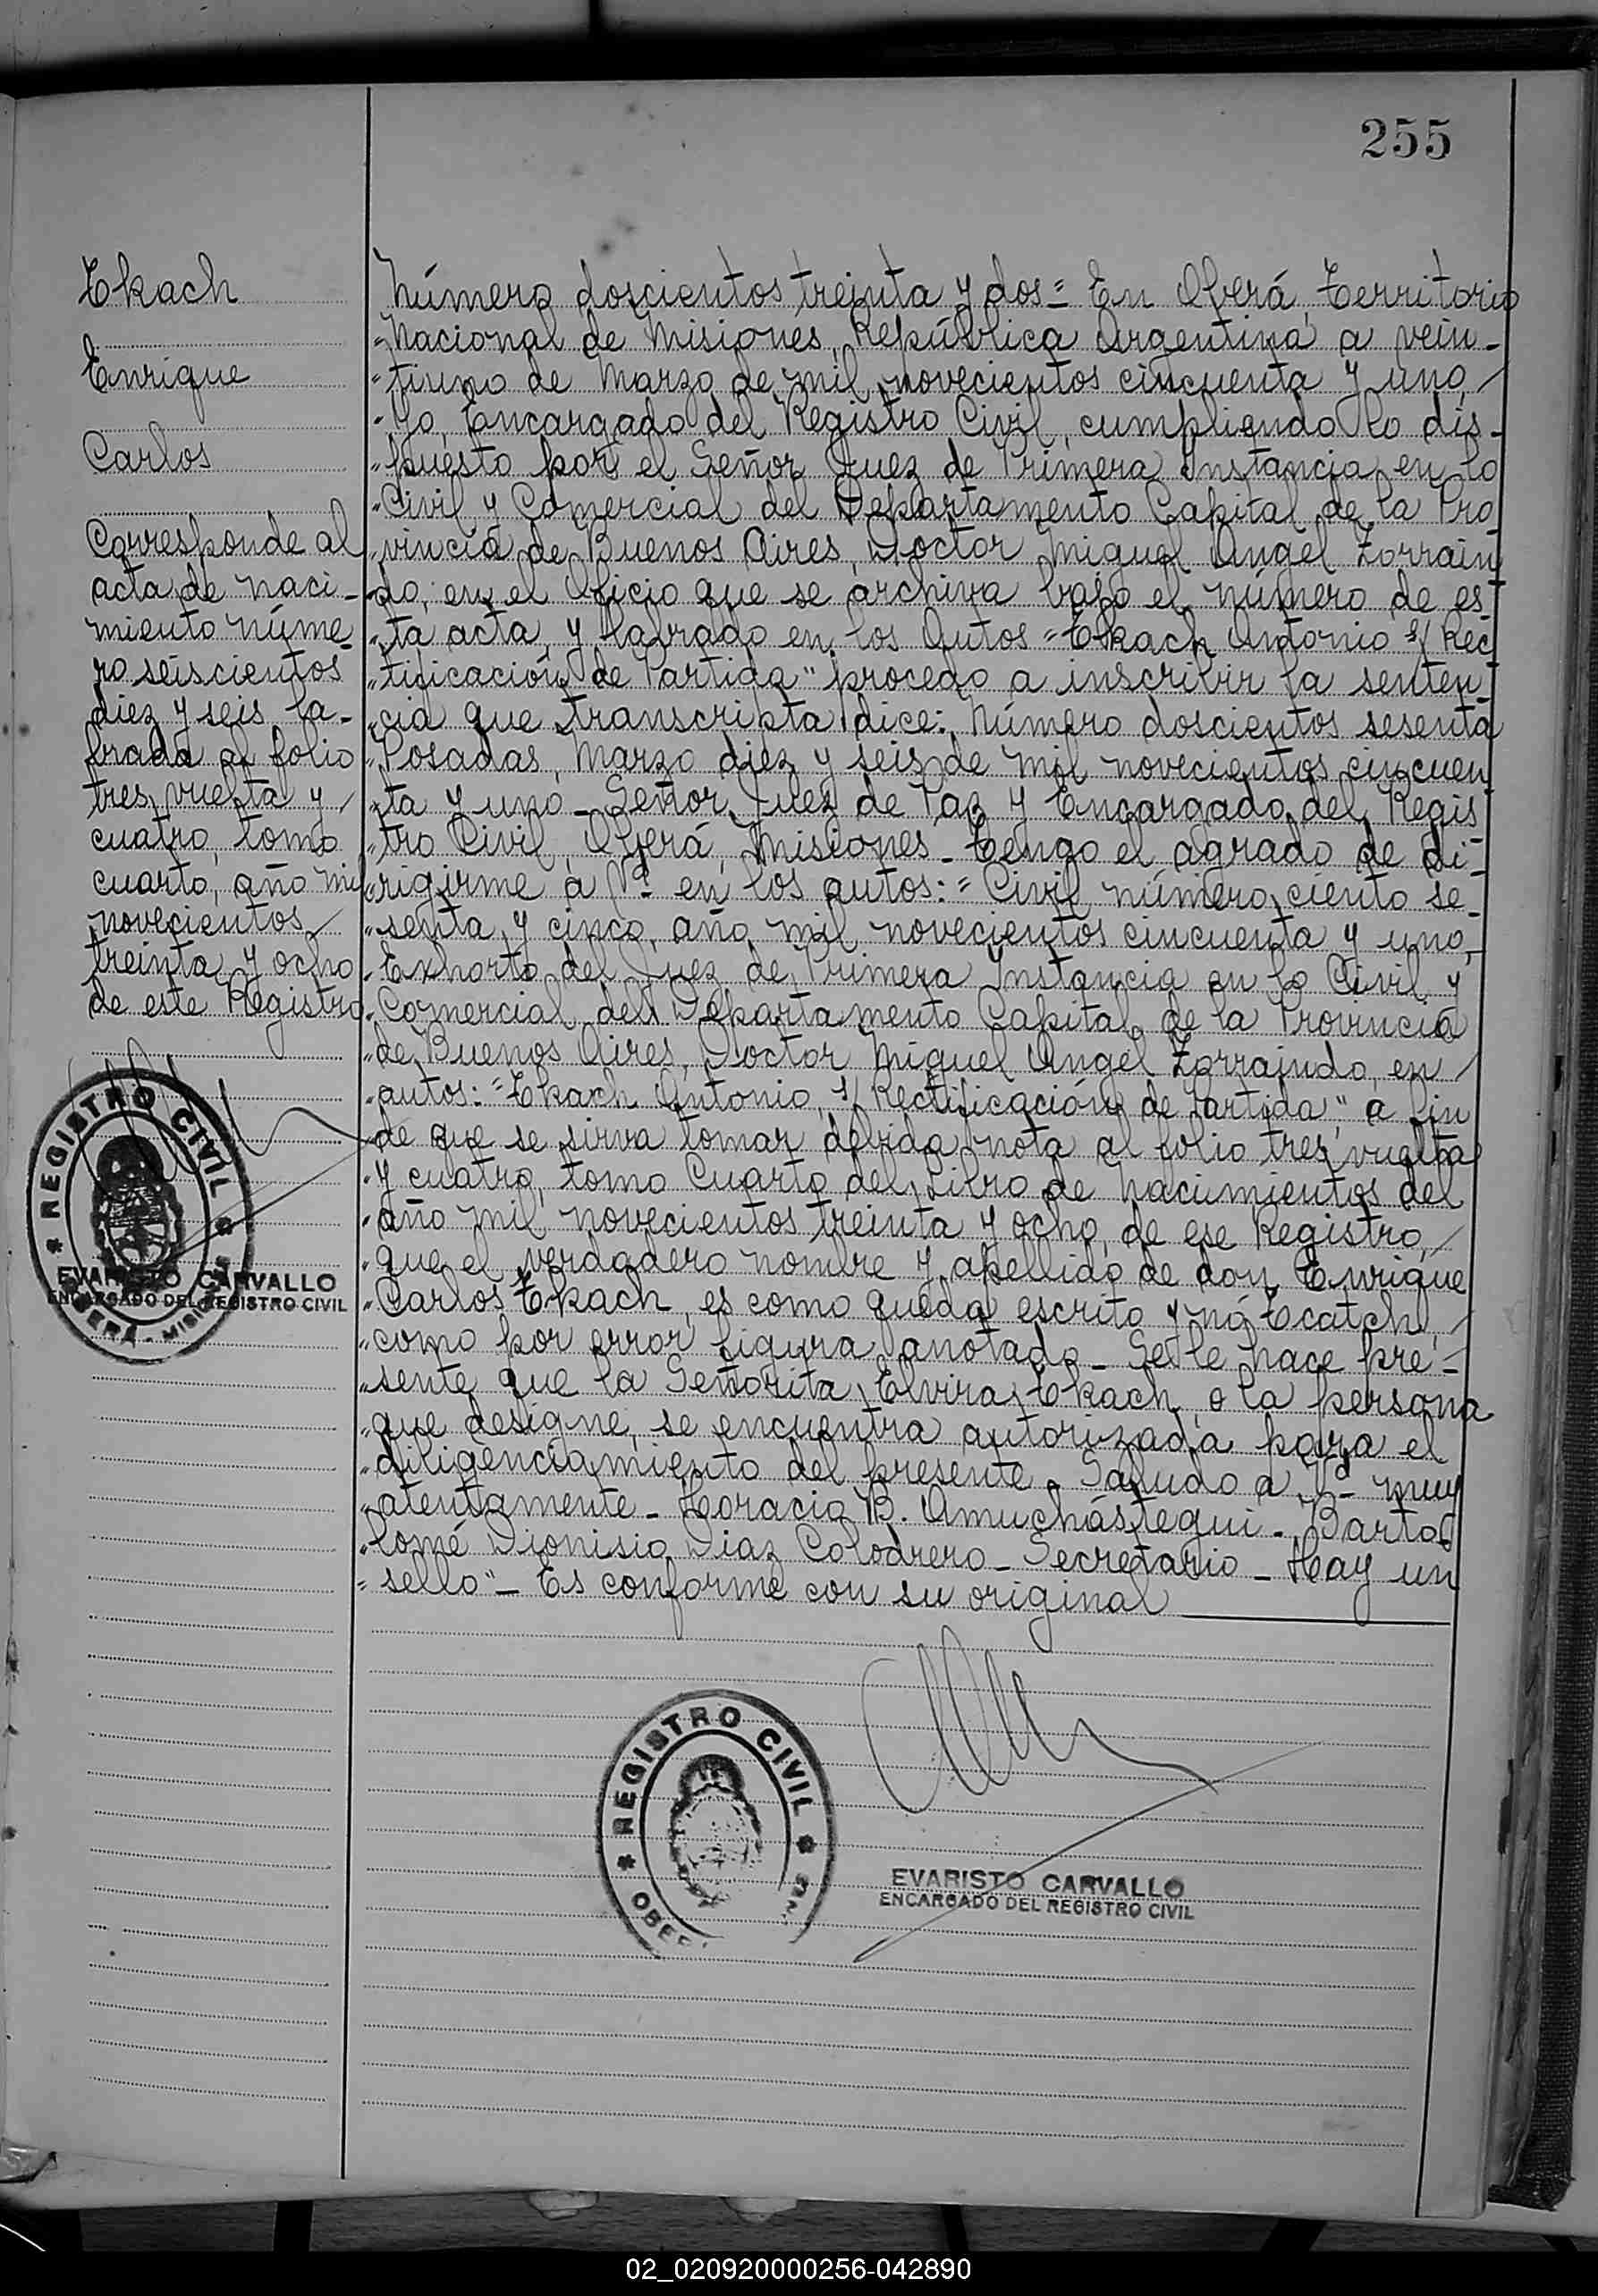 255
Tkach
Enrique
Carlos
Corresponde al
acta de naci-
miento núme
ro seiscientos
diez y seis la-
brada al folio
tres vuelta y
cuatro, tomo
cuarto, año mil
novecientos
treinta y ocho
de este Registro
REGISTRO CIVIL
OBERÁ - MISIONES
EVARISTO CARVALLO
ENCARGADO DEL REGISTRO CIVIL
Número doscientos treinta y dos = En Oberá, Territorio
Nacional de Misiones, República Argentina a vein-
tiuno de Marzo de mil novecientos cincuenta y uno,
Yo, Encargado del Registro Civil, cumpliendo lo dis-
puesto por el Señor Juez de Primera Instancia en lo
Civil y Comercial del Departamento Capital de la Pro
vincia de Buenos Aires, Doctor Miguel Angel Zorrain
do, en el Oficio que se archiva bajo el número de es
ta acta, y labrado en los Autos = Tkach Antonio s/ Rec
tificación de Partida" procedo a inscribir la senten-
cia que transcripta dice: Número doscientos sesenta
Posadas, Marzo diez y seis de mil novecientos cincuen
ta y uno - Señor Juez de Paz y Encargado del Regis
tro Civil, Oberá, Misiones - Tengo el agrado de di-
rigirme a Vd en los autos: = Civil número ciento se-
senta y cinco, año mil novecientos cincuenta y uno,
Exhorto del Juez de Primera Instancia en lo Civil y
Comercial del Departamento Capital de la Provincia
de Buenos Aires, Doctor Miguel Angel Zorraindo, en
autos: = Tkach Antonio, s/ Rectificación de Partida", a fin
de que se sirva tomar debida nota al folio tres vuelta
y cuatro, tomo Cuarto del Libro de Nacimientos del
año mil novecientos treinta y ocho, de ese Registro,
que el verdadero nombre y apellido de don Enrique
Carlos Tkach, es como queda escrito y nó Tcatch,
como por error figura anotado - Se le hace pre-
sente que la Señorita Elvira Tkach, o la persona
que designe, se encuentra autorizada para el
diligenciamiento del presente - Saludo a Vd muy
atentamente - Horacio B. Amuchástegui - Barto
lomé Dionisio Diaz Colodrero - Secretario - Hay un
sello" - Es conforme con su original
REGISTRO CIVIL
OBER
EVARISTO CARVALLO
ENCARGADO DEL REGISTRO CIVIL
02_020920000256-042890